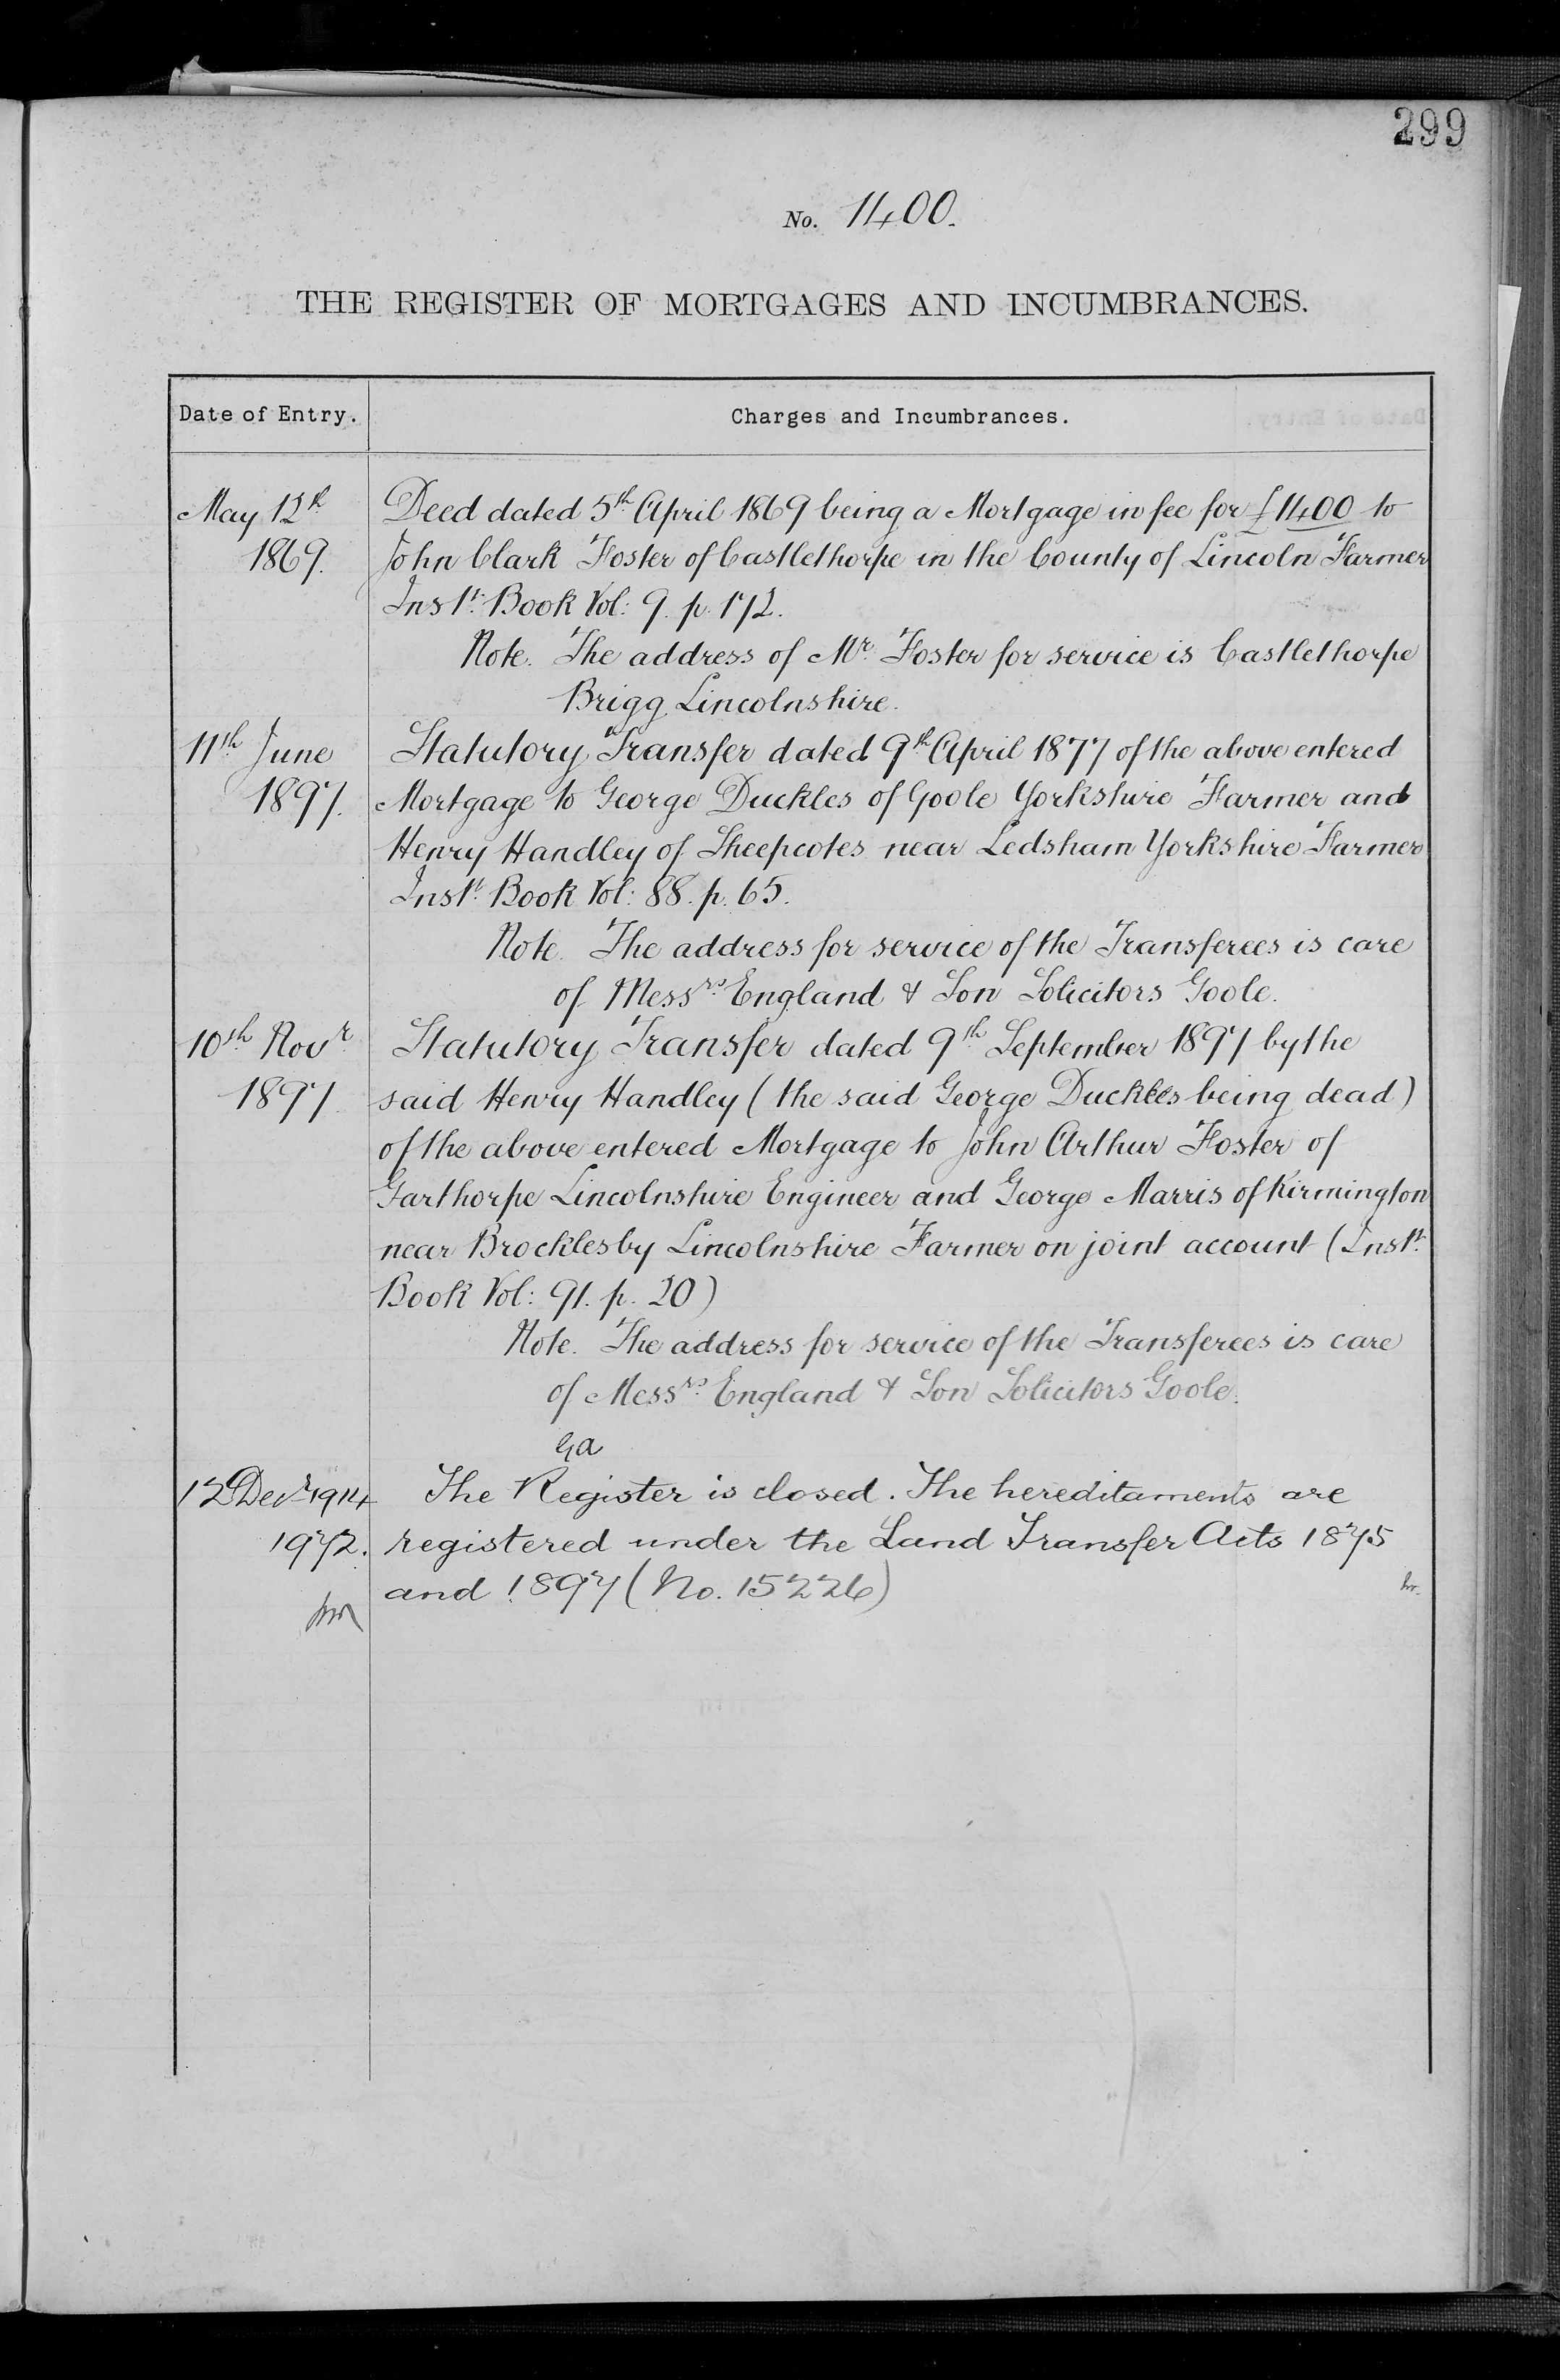 299
No. 1400.
THE REGISTER OF MORTGAGES AND INCUMBRANCES.
Date of Entry.
Charges and Incumbrances.
May 12th
1869.
Deed dated 5th April 1869 being a Mortgage in fee for £1400 to
John Clark Foster of Castlethorpe in the County of Lincoln Farmer
Inst: Book Vol: 9. p. 172.
Note. The address of Mr. Foster for service is Castlethorpe
Brigg Lincolnshire.
11th June
1897.
Statutory Transfer dated 9th April 1877 of the above entered
Mortgage to George Duckles of Goole Yorkshire Farmer and
Henry Handley of Sheepcotes near Ledsham Yorkshire Farmer
Inst: Book Vol: 88. p. 65.
Note. The address for service of the Transferees is care
of Messrs. England & Son Solicitors Goole.
10th Novr.
1897.
Statutory Transfer dated 9th September 1897 by the
said Henry Handley (the said George Duckles being dead)
of the above entered Mortgage to John Arthur Foster of
Garthorpe Lincolnshire Engineer and George Marris of Kirmington
near Brocklesby Lincolnshire Farmer on joint account (Inst:
Book Vol: 91. p. 20)
Note. The address for service of the Transferees is care
of Messrs. England & Son Solicitors Goole.
12 Decr 1914
1972.
The Register is closed. The hereditaments are
registered under the Land Transfer Acts 1875
and 1897 (No. 15226)